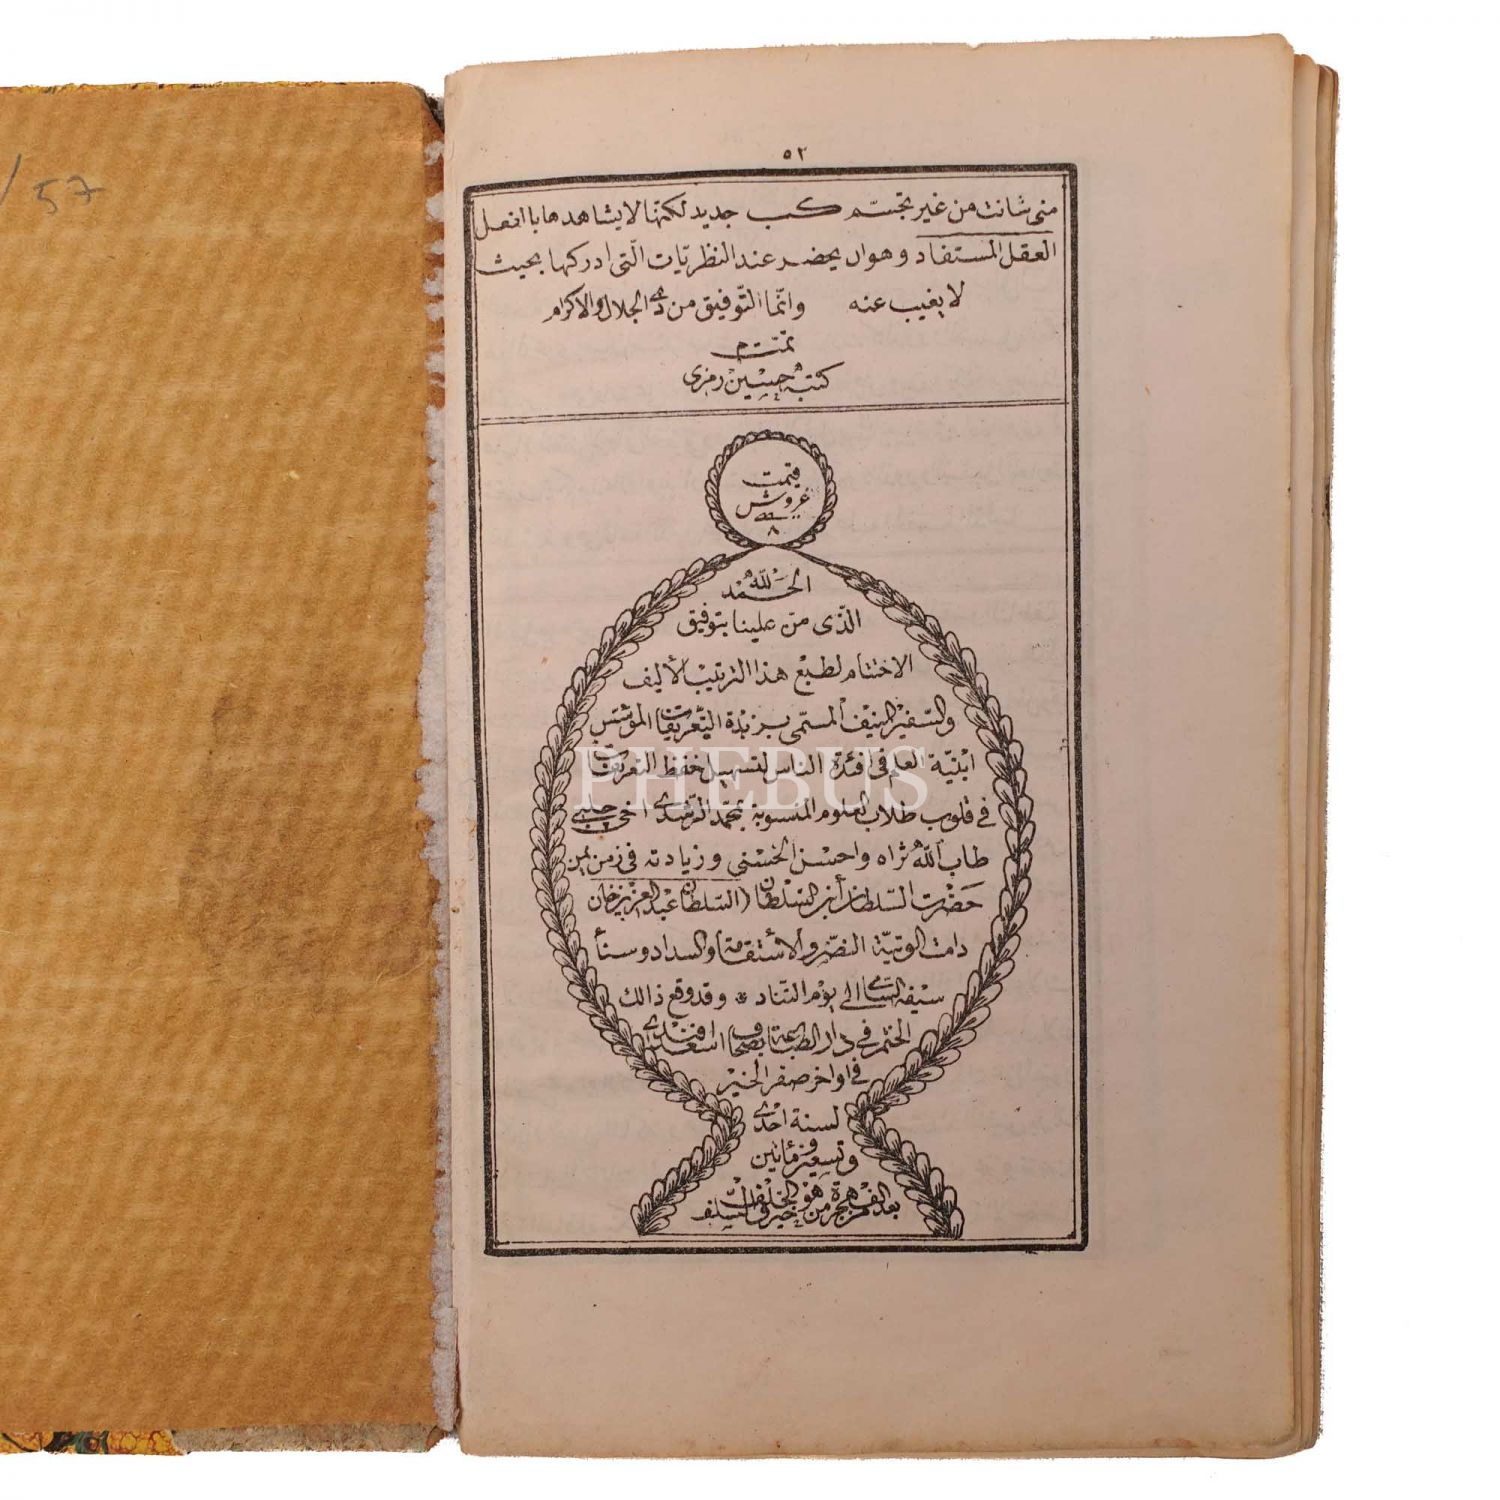 / 57
٥٢
متى شائت من غير تجسّم كسب جديد لكنها لا يشاهدها بالفعل
العقل المستفاد وهو ان يحضر عند النظريّات الّتى ادركها بحيث
لا يغيب عنه وانّما التّوفيق من ذى الجلال والاكرام
تمّت م
كتبه حسين رمزى
قيمت
غروش
٨
الحمد لله
الّذى منّ علينا بتوفيق
الاختتام لطبع هذا الترتيب الأليف
والسّفير المنيف المسمّى بزبدة التّعريفات المؤسّس
ابنيّة العلم فى افئدة الناس لتسهيل حفظ التعريفات
فى قلوب طلاب العلوم المنسوبة بمحمد الرشدى اخى چلبى
طاب الله ثراه واحسن الحسنى وزيادته فى زمن يمن
حضرت السّلطان ابن السّلطان (السّلطان عبد العزيز خان
دامت الوتيّة النصر والاستقامة والسداد وسنأ
سيفه السامى الى يوم التّناد * وقد وقع ذالك
الختم فى دار الطباعة بصحاف اسعد افندى
فى اواخر صفر الخير
لسنة احدى
وتسعين ومأتين
بعد الالف من هجرة من هو الخلف خير السّلف
PHEBUS